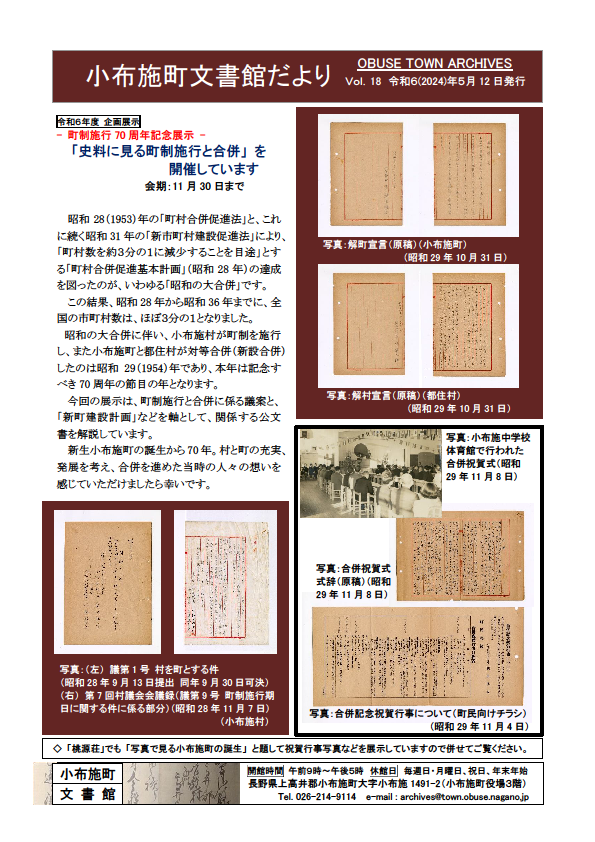 小布施町文書館だより
OBUSE TOWN ARCHIVES
Vol. 18 令和6(2024)年5月12日発行
令和6年度 企画展示
- 町制施行70周年記念展示 -
「史料に見る町制施行と合併」を
開催しています
会期:11月30日まで
昭和28(1953)年の「町村合併促進法」と、これ
に続く昭和31年の「新市町村建設促進法」により、
「町村数を約3分の1に減少することを目途」とす
る「町村合併促進基本計画」(昭和28年)の達成
を図ったのが、いわゆる「昭和の大合併」です。
この結果、昭和28年から昭和36年までに、全
国の市町村数は、ほぼ3分の1となりました。
昭和の大合併に伴い、小布施村が町制を施行
し、また小布施町と都住村が対等合併(新設合併)
したのは昭和 29(1954)年であり、本年は記念す
べき70周年の節目の年となります。
今回の展示は、町制施行と合併に係る議案と、
「新町建設計画」などを軸として、関係する公文
書を解説しています。
新生小布施町の誕生から70年。村と町の充実、
発展を考え、合併を進めた当時の人々の想いを
感じていただけましたら幸いです。
写真:解町宣言(原稿)(小布施町)
(昭和29年10月31日)
写真:解村宣言(原稿)(都住村)
(昭和29年10月31日)
写真:小布施中学校
体育館で行われた
合併祝賀式(昭和
29年11月8日)
写真:合併祝賀式
式辞(原稿)(昭和
29年11月8日)
写真:合併記念祝賀行事について(町民向けチラシ)
(昭和29年11月4日)
写真:(左) 議第1号 村を町とする件
(昭和28年9月13日提出 同年9月30日可決)
(右) 第7回村議会会議録(議第9号 町制施行期
日に関する件に係る部分)(昭和28年11月7日)
(小布施村)
◇ 「桃源荘」でも「写真で見る小布施町の誕生」と題して祝賀行事写真などを展示していますので併せてご覧ください。
小布施町
文書館
開館時間 午前9時~午後5時 休館日 毎週日・月曜日、祝日、年末年始
長野県上高井郡小布施町大字小布施1491-2(小布施町役場3階)
Tel. 026-214-9114 e-mail : archives@town.obuse.nagano.jp